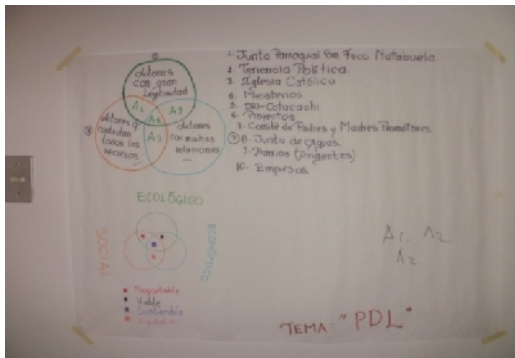 Actores
con gran
legitimidad
A1
A3
A4
A2
Actores q'
controlan
todos los
recursos.
Actores
con muchas
relaciones
1. Junta Parroquial San Fco Natabuela.
2. Tenencia Política.
3. Iglesia Católica
4. Ministerios
5. DRI-Cotacachi
6. Proyectos
7. Comité de Padres y Madres Promotores.
8. Junta de Agua.
9. Barrios (Dirigentes)
10. Empresas
ECOLÓGICO
SOCIAL
ECONÓMICO
Soportable
Viable
Sostenible
Equitativo
A1 A2
A3
TEMA: "PDL"